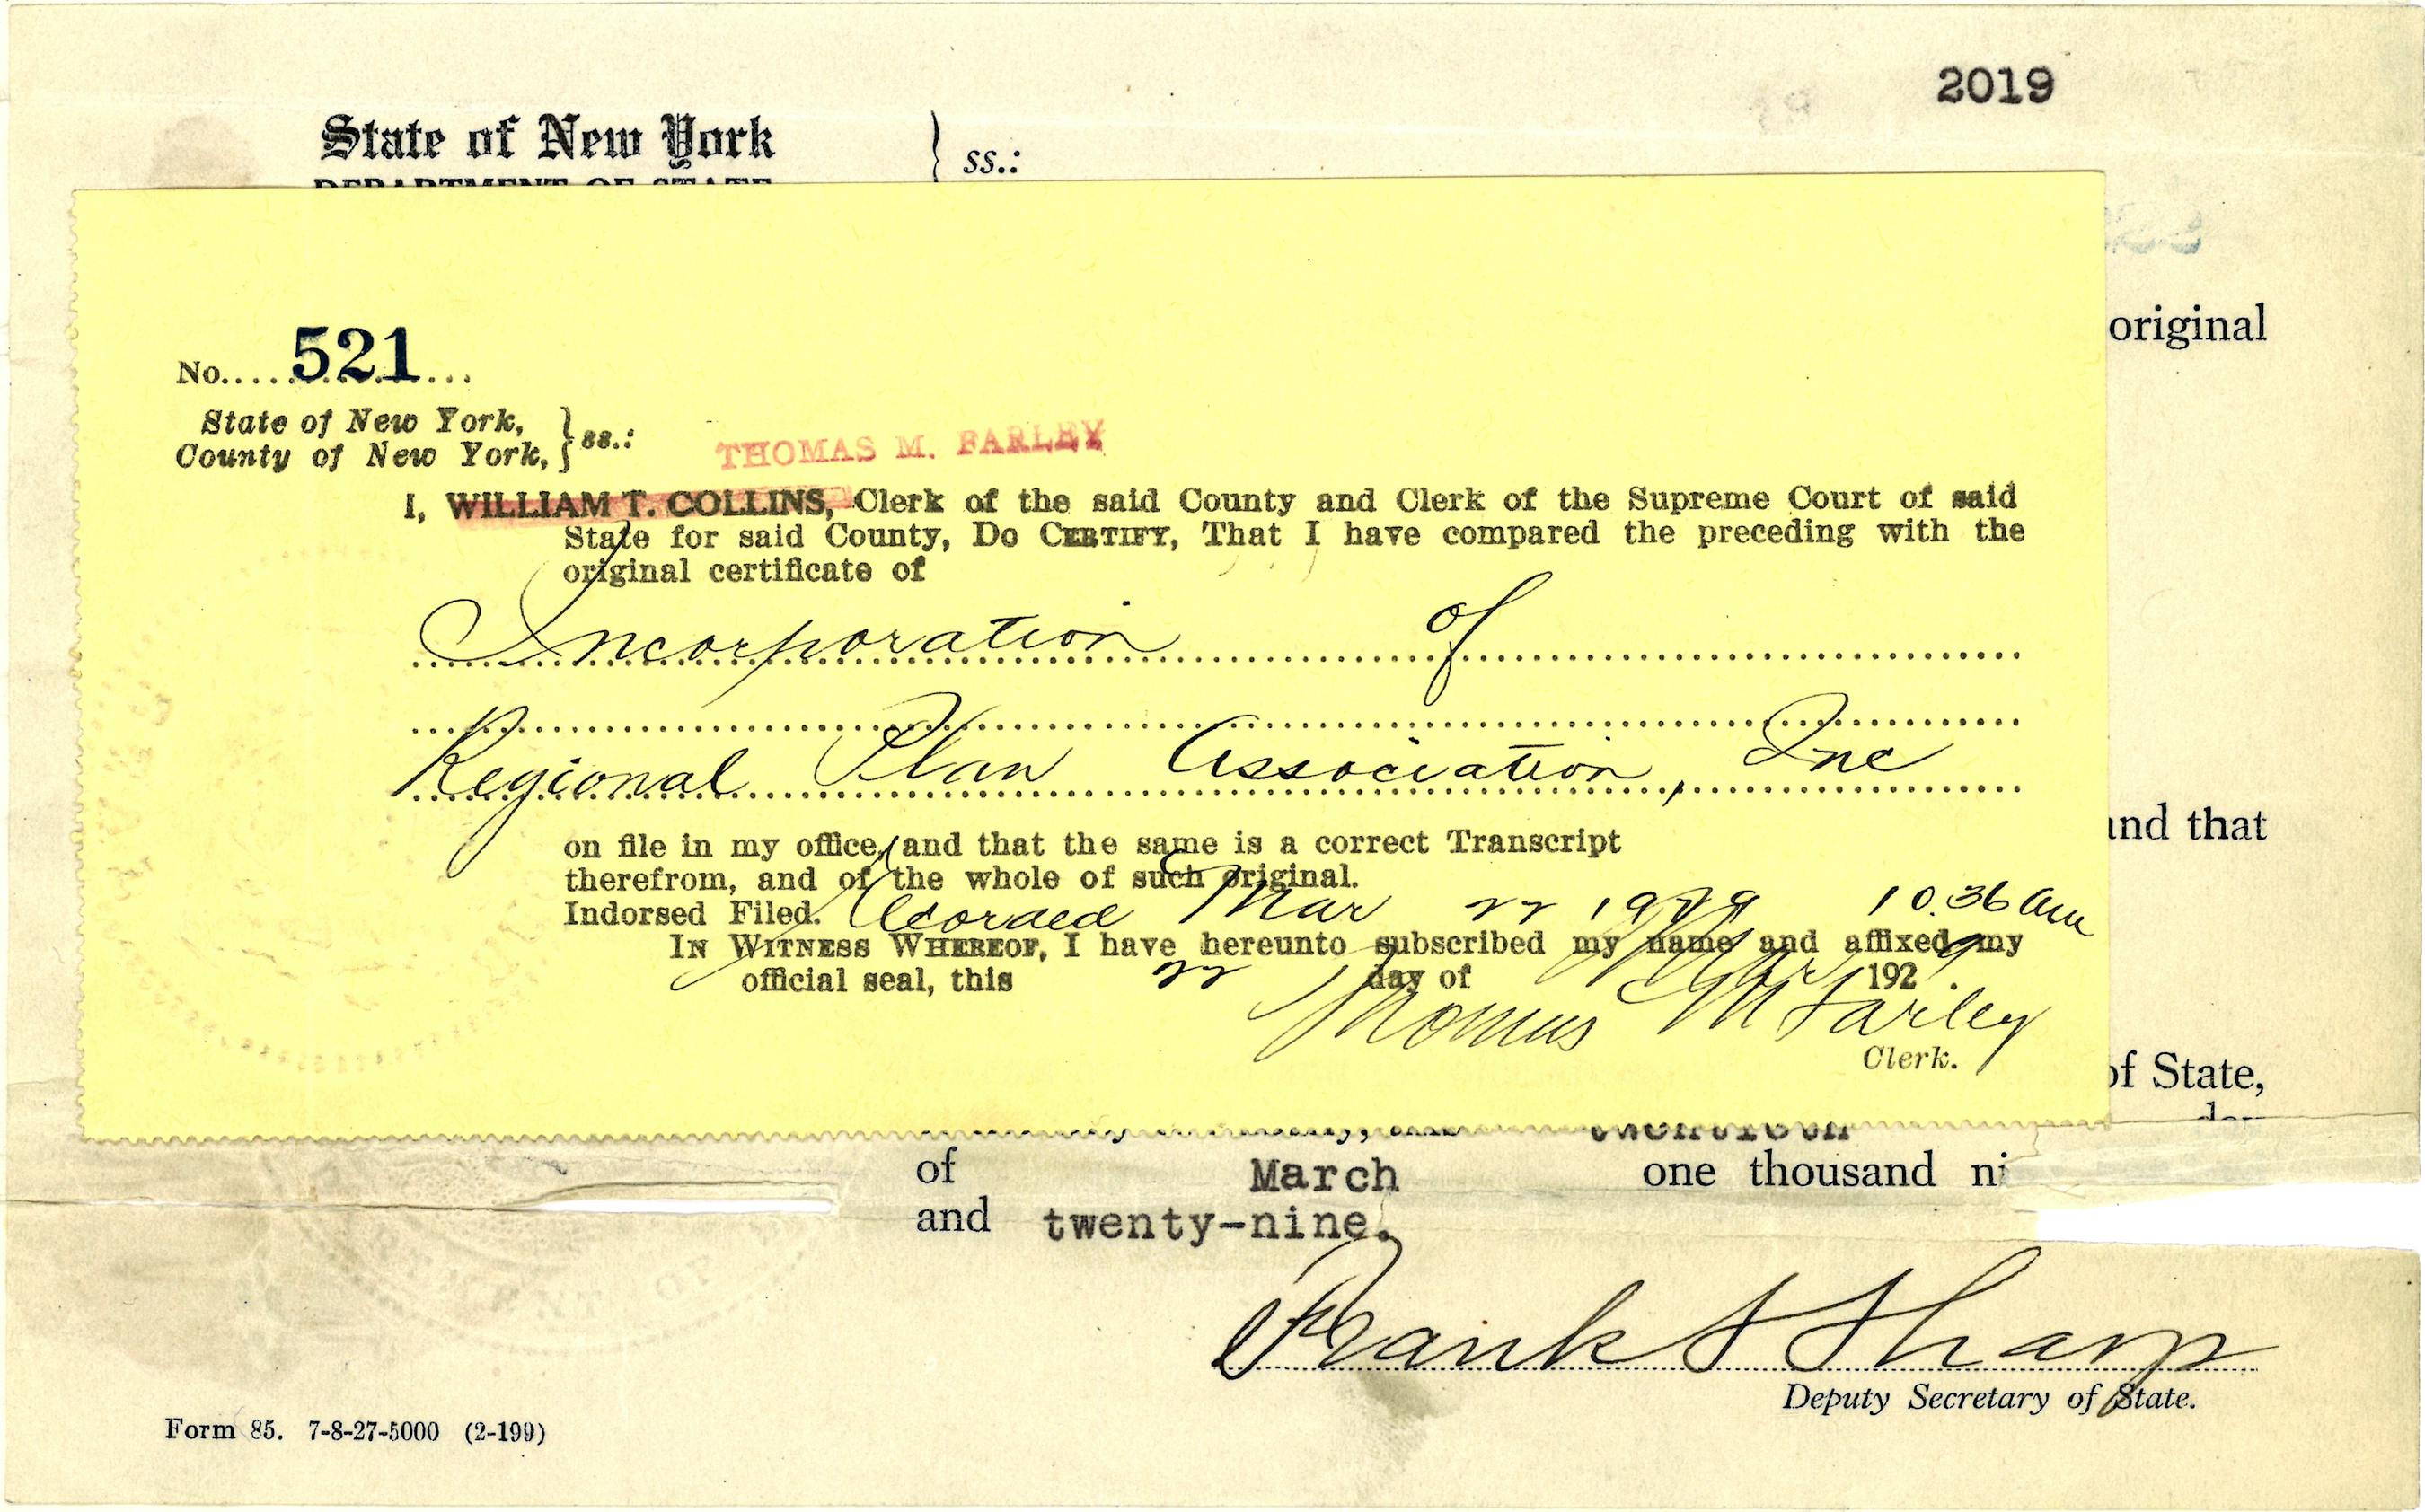 2019
State of New York } ss.:
DEPARTMENT OF STATE
original
No. 521
State of New York,
County of New York, } ss.:
THOMAS M. FARLEY
I, WILLIAM T. COLLINS, Clerk of the said County and Clerk of the Supreme Court of said
State for said County, Do CERTIFY, That I have compared the preceding with the
original certificate of
Incorporation of
Regional Plan Association, Inc
on file in my office, and that the same is a correct Transcript
therefrom, and of the whole of such original.
Indorsed Filed. Recorded Mar 22 1929 10.36 am
IN WITNESS WHEREOF, I have hereunto subscribed my name and affixed my
official seal, this 22 day of Mar 1929.
Thomas M Farley
Clerk.
and that
of State,
twentieth
of March one thousand ni
and twenty-nine.
Frank S Sharp
Deputy Secretary of State.
Form 85. 7-8-27-5000 (2-199)